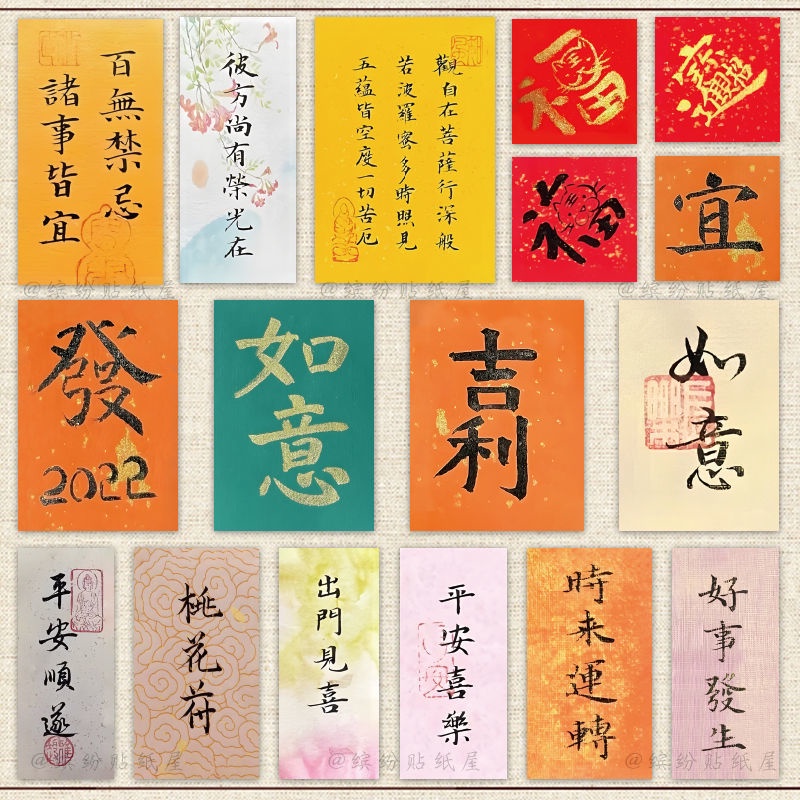 百無禁忌
諸事皆宜
彼方尚有榮光在
觀自在菩薩行深般
若波羅蜜多時照見
五蘊皆空度一切苦厄
福
招財進寶
福
宜
@缤纷贴纸屋
@缤纷贴纸屋
@缤纷贴纸屋
發
2022
如意
吉利
如意
平安順遂
桃花符
出門見喜
平安喜樂
時来運轉
好事發生
@缤纷贴纸屋
@缤纷贴纸屋
@缤纷贴纸屋